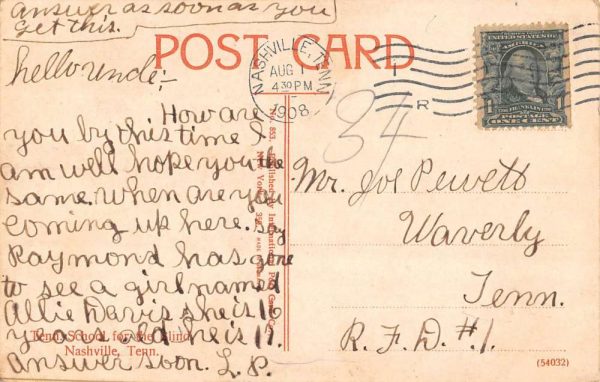 answer as soon as you
get this.
POST CARD
NASHVILLE, TENN.
AUG 1
4 30 PM
1908
1
R
UNITED STATES OF AMERICA
FRANKLIN
POSTAGE
ONE CENT
34
hello Uncle;-
How are
you by this time I
am well hope you the
same. When are you
coming up here. Say
Raymond has gone
to see a girl named
Allie Davis she is 16
years old he is 17.
Answer soon. L. P.
Mr. Joe Pewett
Waverly
Tenn.
R.F.D. #1.
No. 853. Published by International Post Card Co.
New York
Tenn. School for the Blind,
Nashville, Tenn.
(54032)